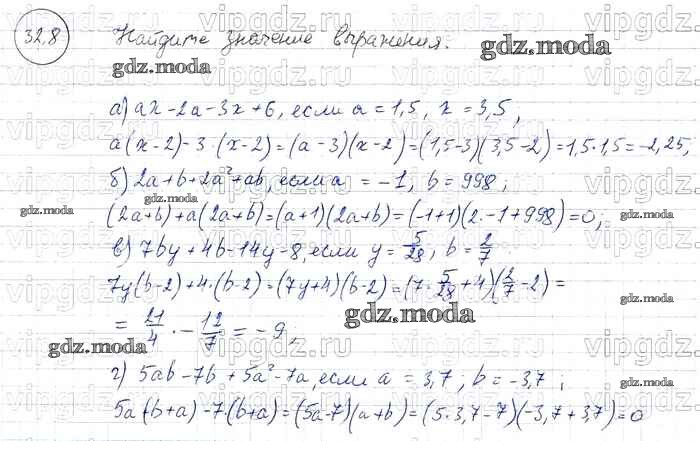 32.8 Найдите значение выражения.
а) ax - 2a - 3x + 6, если a = 1,5, x = 3,5;
a(x-2) - 3·(x-2) = (a-3)(x-2) = (1,5-3)(3,5-2) = 1,5·1,5 = -2,25;
б) 2a + b + 2a² + ab, если a = -1, b = 998;
(2a+b) + a(2a+b) = (a+1)(2a+b) = (-1+1)(2·-1+998) = 0;
в) 7by + 4b - 14y - 8, если y = 5/28, b = 2/7
7y(b-2) + 4·(b-2) = (7y+4)(b-2) = (7·5/28+4)(2/7-2) =
= 21/4 · -12/7 = -9;
г) 5ab - 7b + 5a² - 7a, если a = 3,7; b = -3,7;
5a(b+a) - 7·(b+a) = (5a-7)(a+b) = (5·3,7-7)(-3,7+3,7) = 0
gdz.moda
vipgdz.ru